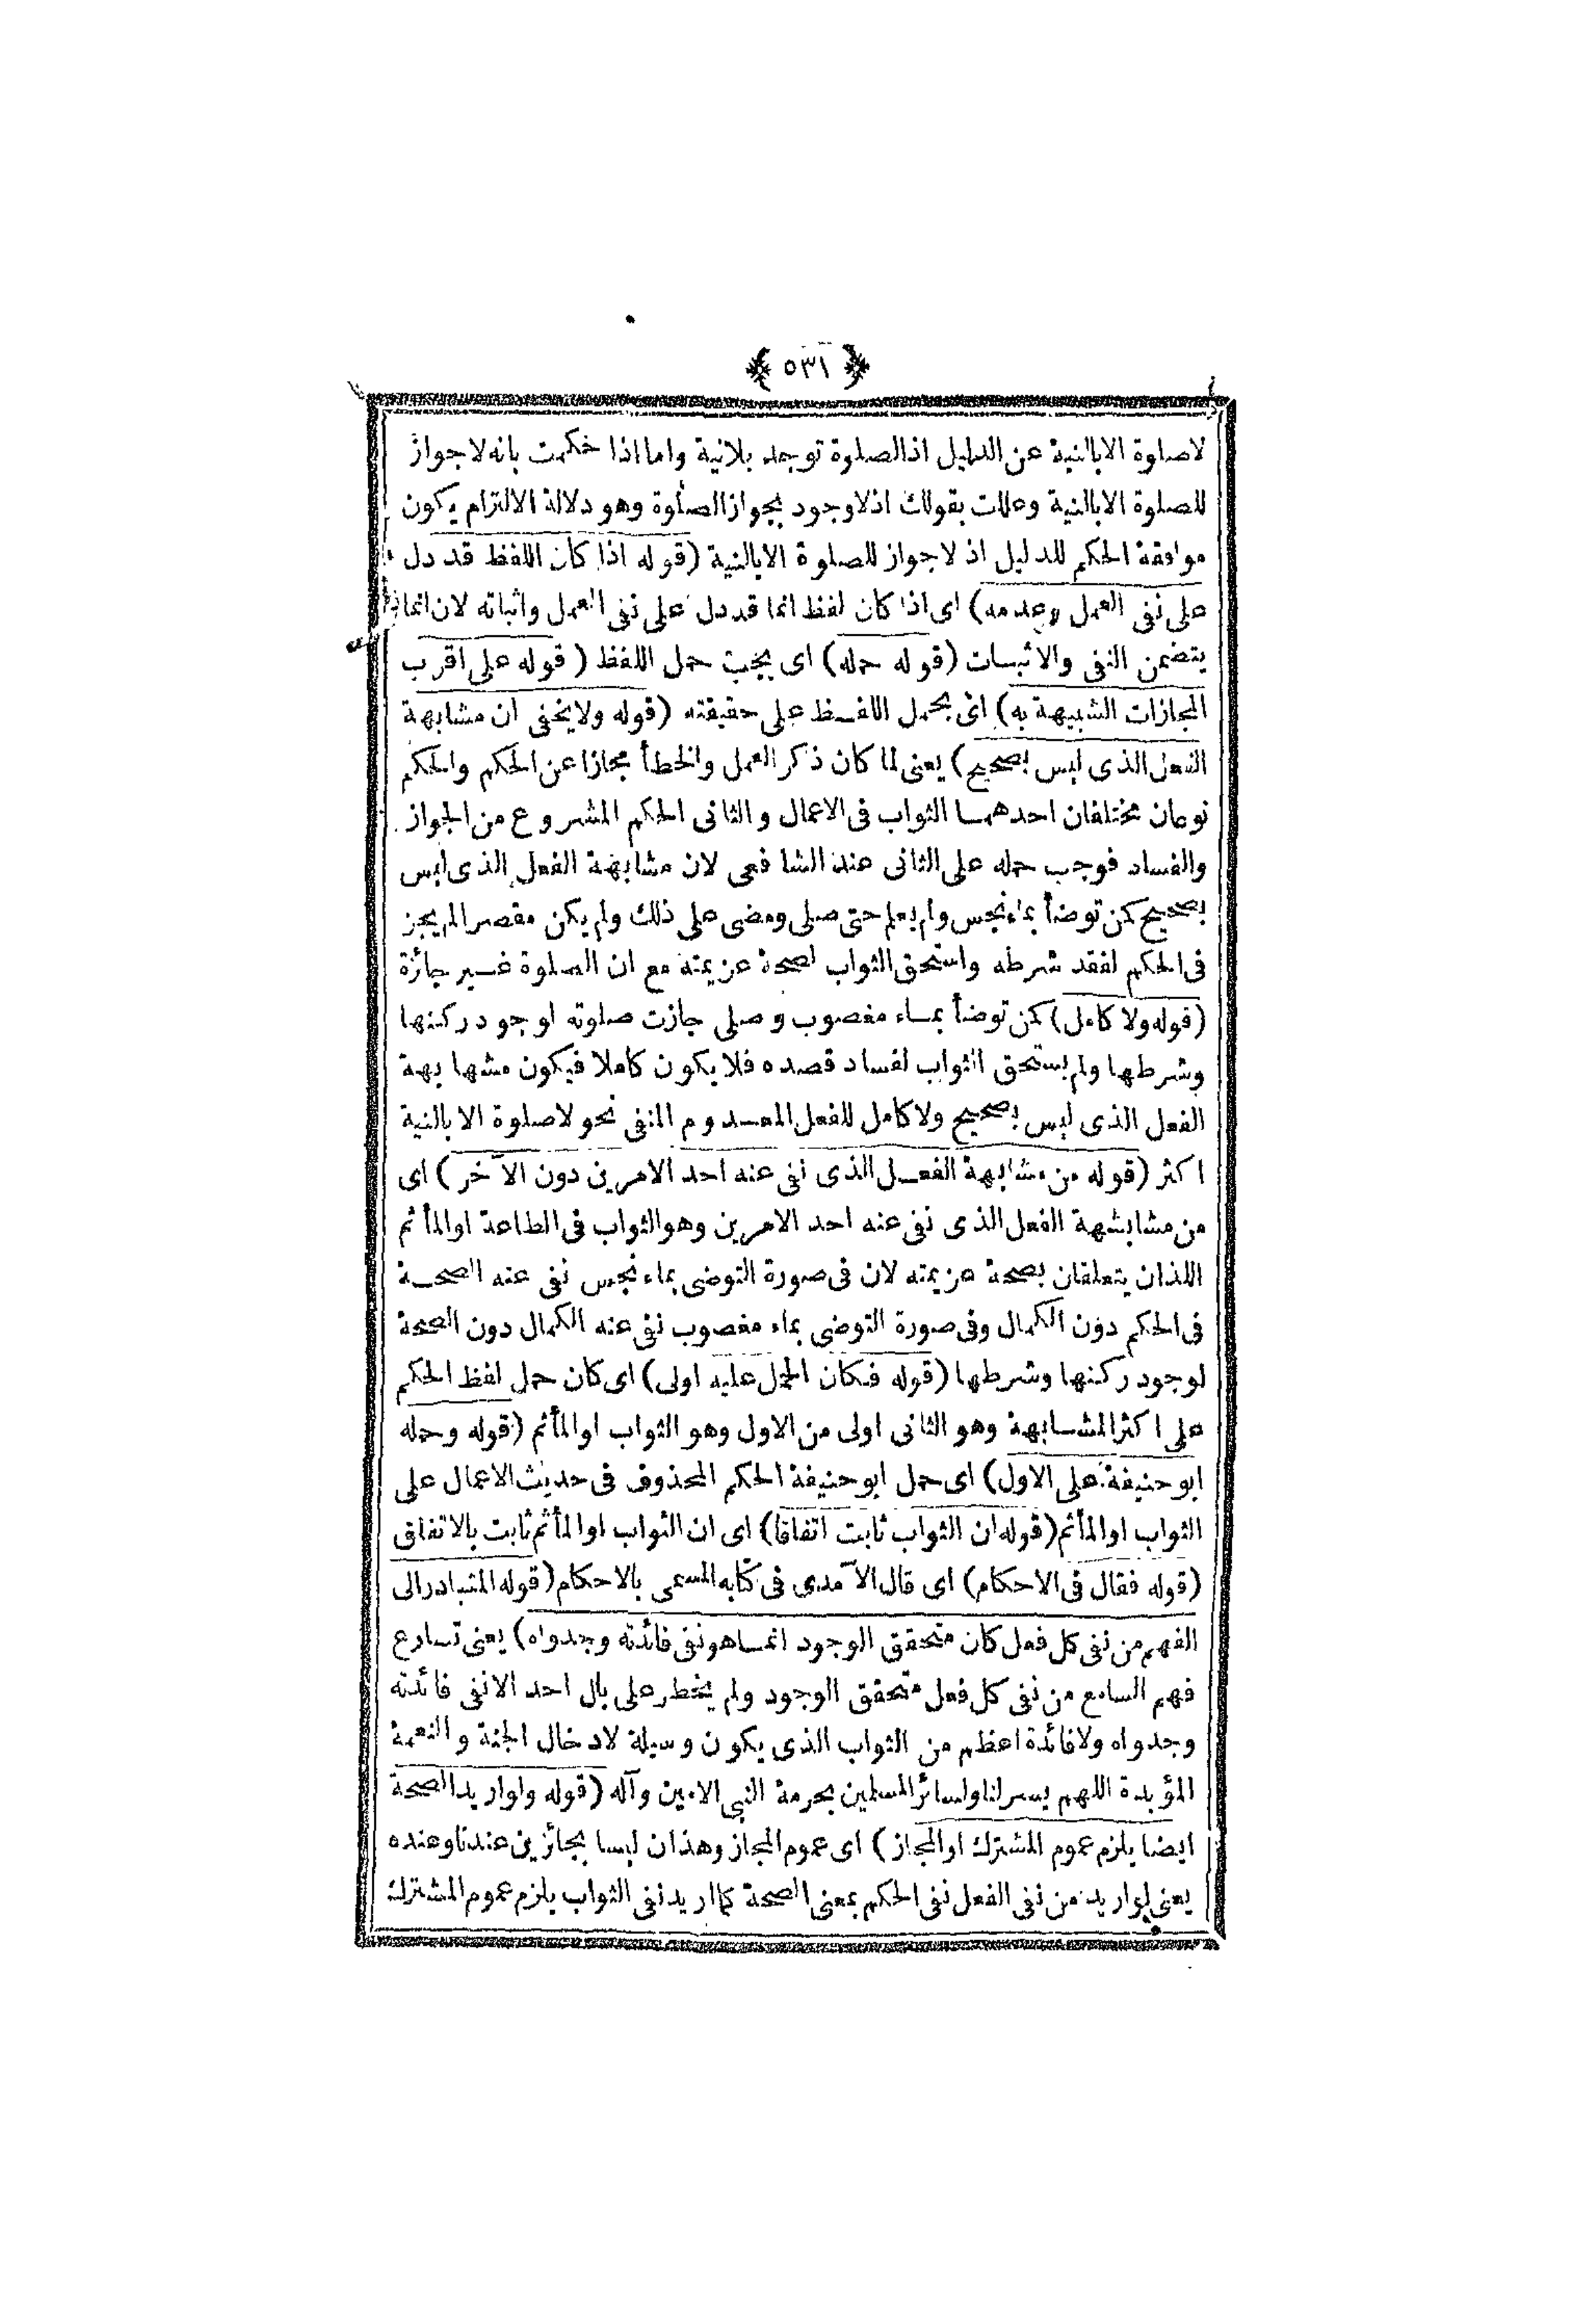 ﴿ ٥٣١ ﴾
لاصلوة الابالنية عن الدليل اذالصلوة توجد بلانية واما اذا حكمت بانه لاجواز
للصلوة الابالنية وعللت بقولك اذلاوجود بجوازالصلوة وهو دلالة الالتزام يكون
موافقة الحكم للدليل اذ لاجواز للصلوة الابالنية (قوله اذا كان اللفظ قد دل
على نفى العمل وعدمه) اى اذا كان لفظ انما قددل على نفى العمل واثباته لان انما
يتضمن النفى والاثبات (قوله حمله) اى يجب حمل اللفظ (قوله على اقرب
المجازات الشبيهة به) اى يحمل اللفظ على حقيقته (قوله ولايخفى ان مشابهة
الفعل الذى ليس بصحيح) يعنى لما كان ذكر العمل والخطأ مجازا عن الحكم والحكم
نوعان مختلفان احدهما الثواب فى الاعمال والثانى الحكم المشروع من الجواز
والفساد فوجب حمله على الثانى عند الشافعى لان مشابهة الفعل الذى ليس
بصحيح كمن توضأ بماء نجس ولم يعلم حتى صلى ومضى على ذلك ولم يكن مقصرا لم يجز
فى الحكم لفقد شرطه واستحق الثواب لصحة عزيمته مع ان الصلوة غير جائزة
(قوله ولا كامل) كمن توضأ بماء مغصوب وصلى جازت صلوته لوجود ركنها
وشرطها ولم يستحق الثواب لفساد قصده فلا يكون كاملا فيكون مشهابهة
الفعل الذى ليس بصحيح ولاكامل للفعل المعدوم المنفى نحو لاصلوة الابالنية
اكثر (قوله من مشابهة الفعل الذى نفى عنه احد الامرين دون الآخر) اى
من مشابشهة الفعل الذى نفى عنه احد الامرين وهوالثواب فى الطاعة اوالمأثم
اللذان يتعلقان بصحة عزيمته لان فى صورة التوضى بماء نجس نفى عنه الصحة
فى الحكم دون الكمال وفى صورة التوضى بماء مغصوب نفى عنه الكمال دون الصحة
لوجود ركنها وشرطها (قوله فكان الحمل عليه اولى) اى كان حمل لفظ الحكم
على اكثرالمشابهة وهو الثانى اولى من الاول وهو الثواب اوالمأثم (قوله وحمله
ابوحنيفة على الاول) اى حمل ابوحنيفة الحكم المحذوف فى حديث الاعمال على
الثواب اوالمأثم (قوله ان الثواب ثابت اتفاقا) اى ان الثواب اوالمأثم ثابت بالاتفاق
(قوله فقال فى الاحكام) اى قال الآمدى فى كتابه المسمى بالاحكام (قوله المتبادرالى
الفهم من نفى كل فعل كان متحقق الوجود انماهونفى فائدته وجدواه) يعنى تسارع
فهم السامع من نفى كل فعل متحقق الوجود ولم يخطر على بال احد الانفى فائدته
وجدواه ولافائدة اعظم من الثواب الذى يكون وسيلة لادخال الجنة والنعمة
المؤبدة اللهم يسرلناولسائرالمسلمين بحرمة النبى الامين وآله (قوله ولواريدالصحة
ايضا يلزم عموم المشترك اوالمجاز) اى عموم المجاز وهذان ليسا بجائزين عندناوعنده
يعنى لواريد من نفى الفعل نفى الحكم بمعنى الصحة كمااريدنفى الثواب يلزم عموم المشترك